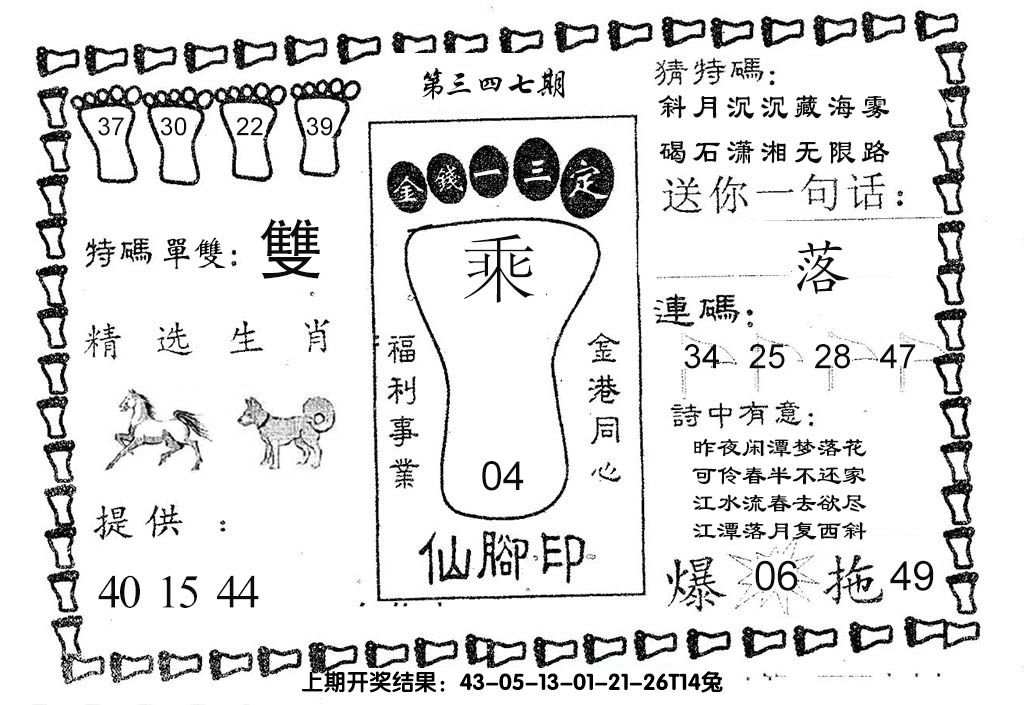 第三四七期
37 30 22 39
特碼單雙：雙
精选生肖
提供：
40 15 44
金錢一三定
乘
福利事業
金港同心
04
仙腳印
猜特碼：
斜月沉沉藏海雾
碣石潇湘无限路
送你一句话：
落
連碼：
34 25 28 47
詩中有意：
昨夜闲潭梦落花
可伶春半不还家
江水流春去欲尽
江潭落月复西斜
爆 06 拖 49
上期开奖结果：43-05-13-01-21-26T14兔